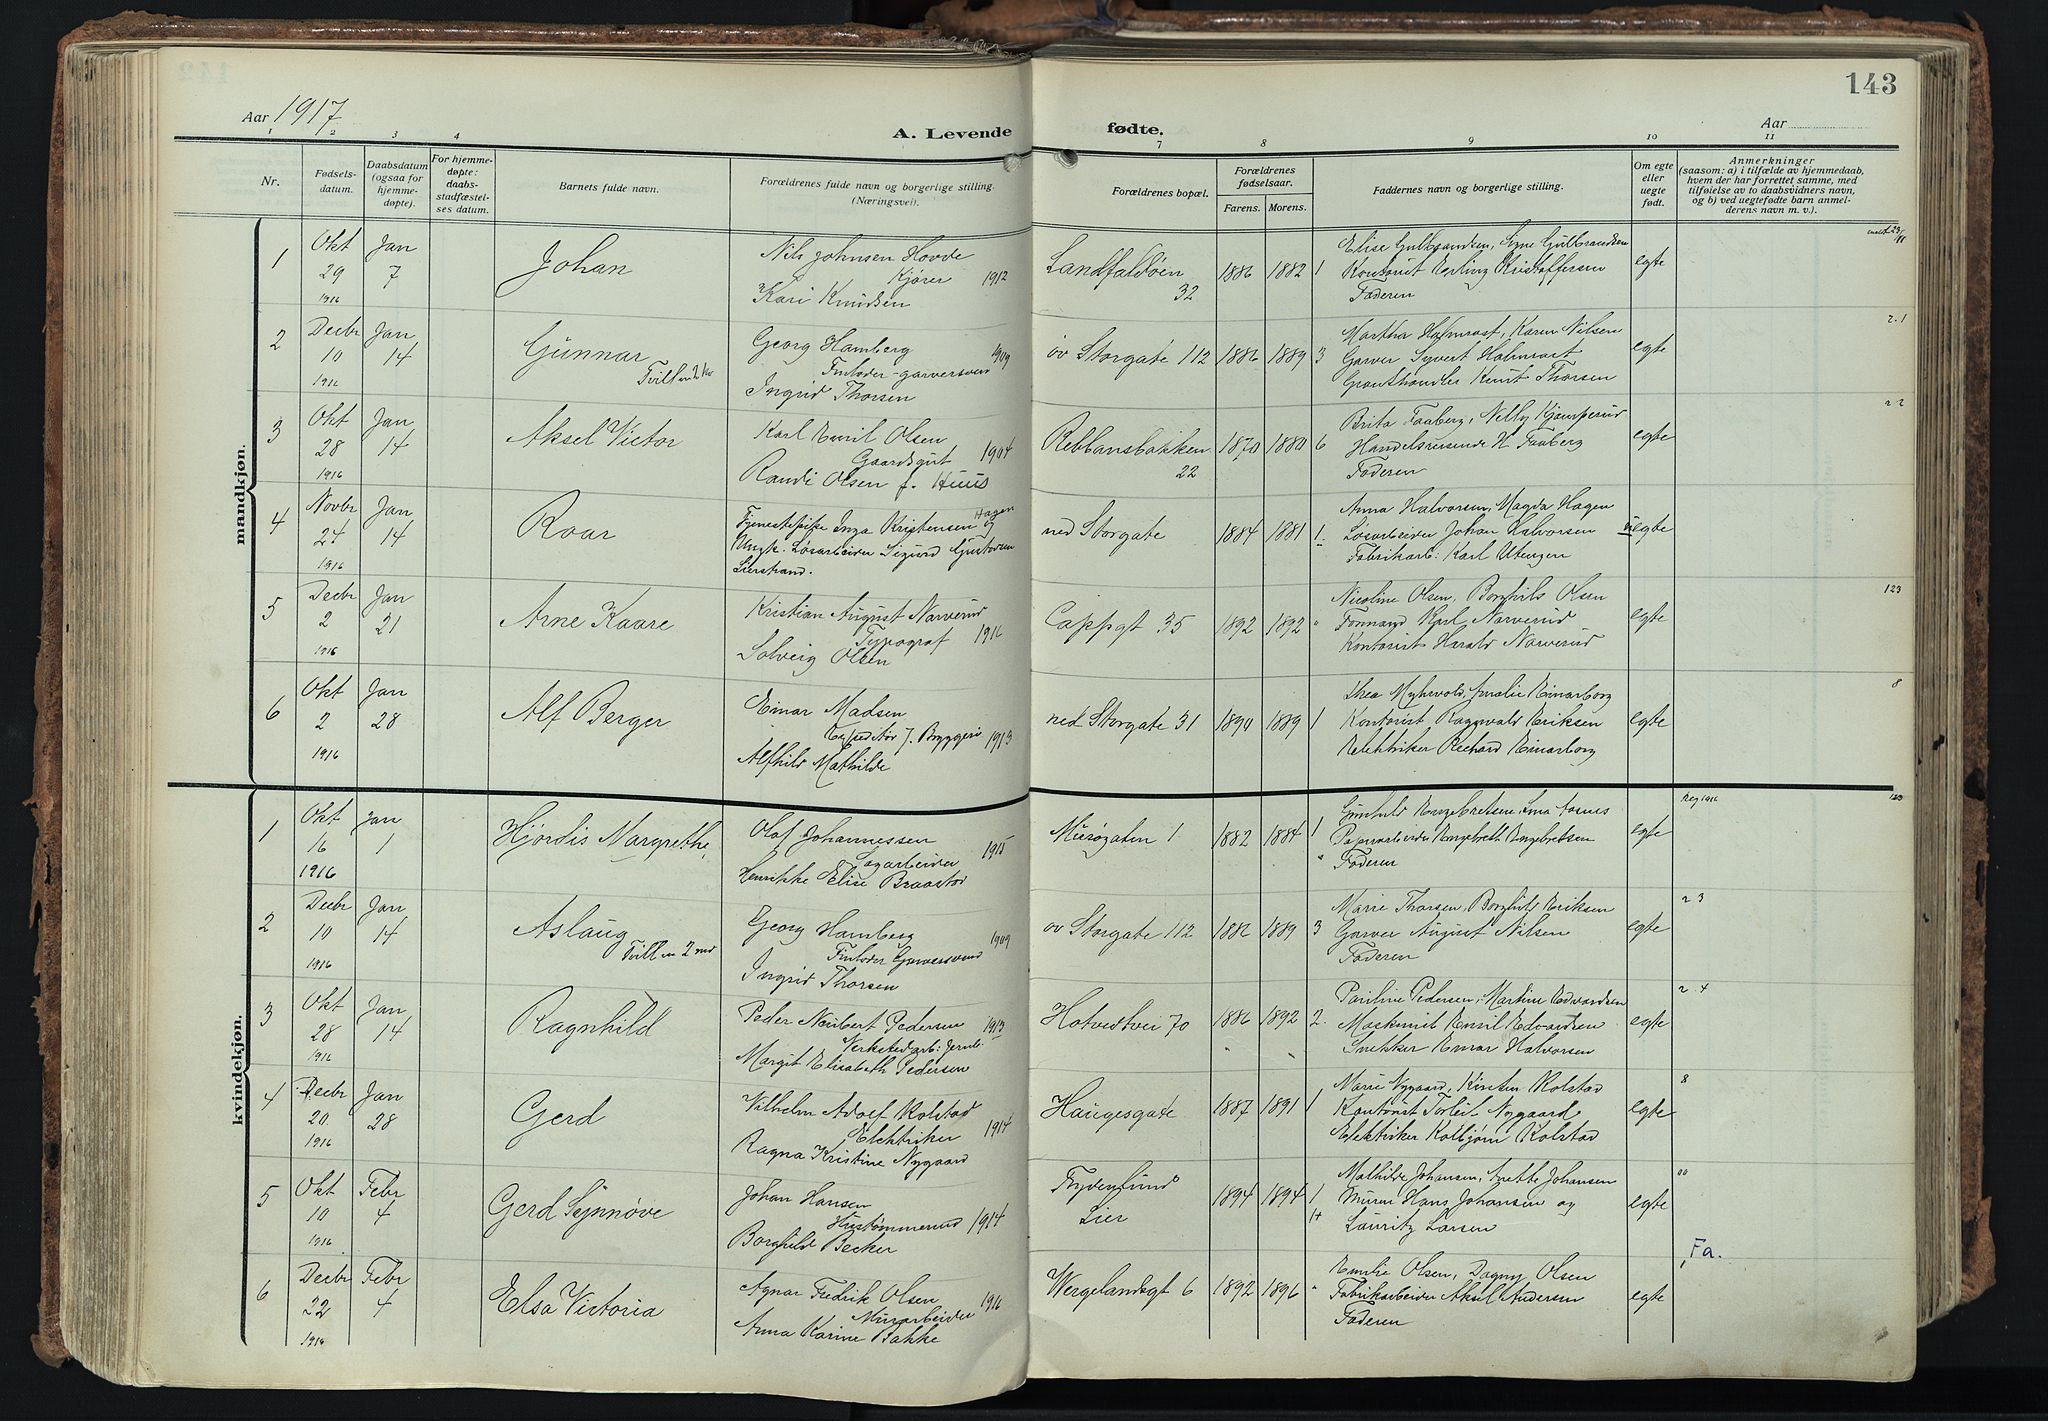 143
Aar 1917
A. Levende fødte.
Aar
1 2 3 4 7 8 9 10 11
Nr.
Fødsels-
datum.
Daabsdatum
(ogsaa for
hjemme-
døpte).
For hjemme-
døpte:
daabs-
stadfæstel-
ses datum.
Barnets fulde navn.
Forældrenes fulde navn og borgerlige stilling.
(Næringsvei).
Forældrenes bopæl.
Forældrenes
fødselsaar.
Farens. Morens.
Faddernes navn og borgerlige stilling.
Om egte
eller
uegte
født.
Anmerkninger
(saasom: a) i tilfælde av hjemmedaab,
hvem der har forrettet samme, med
tilføielse av to daabsvidners navn,
og b) ved uegtefødte barn anmel-
derens navn m. v.).
mandkjøn.
1 Okt 29 1916 Jan 7 Johan
Nils Johnsen Hovde
Kjører 1912
Kari Knudsen
Landfaldøen 32 1886 1882 1
Elise Gulbrandsen, Signe Gulbrandsen
Kontorist Erling Kristoffersen
Faderen
egte
2 Decbr 10 1916 Jan 14 Gunnar
Tvill
Georg Hamberg 1909
garversvend
Ingrid Thorsen
øv Storgate 112 1886 1889 3
Martha Holmrast, Karen Nilsen
Garver Syvert Holmrast
Knut Thorsen
egte
2.1
3 Okt 28 1916 Jan 14 Aksel Victor
Karl Emil Olsen
Gaardsgut 1904
Randi Olsen f. Huus
Rebbansbakken 22 1870 1880 6
Brita Faaberg, Nelly Kjamperud
Handelsreisende H Faaberg
Faderen
egte
22
4 Novbr 24 1916 Jan 14 Roar
Tjenestepike Inga Kristensen Hagen og
Ungk. Løsarbeider Sigurd Gustavsen
Lierstrand.
ned Storgate 1884 1881 1
Anna Halvorsen, Magda Hagen
Løsarbeider Johan Halvorsen
Fabrikarb: Karl Utengen
uegte
5 Decbr 2 1916 Jan 21 Arne Kaare
Kristian August Narverud
Typograf 1916
Solveig Olsen
Cappgt 35 1892 1892 "
Nicoline Olsen, Borghild Olsen
Formand Karl Narverud
Kontorist Harald Narverud
egte
123
6 Okt 2 1916 Jan 28 Alf Berger
Einar Madsen
Bryggeri 1913
Alfhild Mathilde
ned Storgate 31 1890 1889 1
Thea Myhrvold, Amalie Einarborg
Kontorist Ragnvald Eriksen
Elektriker Richard Einarborg
egte
8
kvindekjøn.
1 Okt 16 1916 Jan 1 Hjørdis Margrethe
Olaf Johannessen
Sagarbeider 1915
Henrikke Elise Braastad
Muségaten 1 1882 1884 1
Gunhild Engebretsen, Lina Aasnes
Papirarbeider Engebreth Engebretsen
" Faderen
egte
Reg 1916
123
2 Decbr 10 1916 Jan 14 Aslaug
Tvill
Georg Hamberg 1909
Garversvend
Ingrid Thorsen
øv Storgate 112 1886 1889 3
Marie Thorsen, Borghild Eriksen
Garver August Nilsen
Faderen
egte
2 3
3 Okt 28 1916 Jan 14 Ragnhild
Peder Norbert Pedersen 1913
Verkstedarb: Jernb.
Margit Elisabeth Pedersen
Hotvedtvei 70 1886 1892 2.
Pauline Pedersen, Martine Edvardsen
Maskinist Emil Edvardsen
Snekker Einar Halvorsen
egte
2.4
4 Decbr 20 1916 Jan 28 Gerd
Vilhelm Adolf Kolstad
Elektriker 1914
Ragna Kristine Nygaard
Haugesgate 1887 1891 1
Marie Nygaard, Kirsten Kolstad
Kontorist Torleif Nygaard
Elektriker Kolbjørn Kolstad
egte
8
5 Okt 10 1916 Febr 4 Gerd Synnøve
Johan Hansen
Hustømmermd 1914
Borghilde Becker
Frydenlund
Lier
1894 1894 1
1+
Mathilde Johansen, Anette Johansen
Murer Hans Johansen og
Lauritz Larsen
egte
00
6 Decbr 22 1916 Febr 4 Elsa Victoria
Agnar Fredrik Olsen 1916
Murarbeider
Anna Karine Bakke
Wergelandsgt 6 1892 1896 "
Emilie Olsen, Dagny Olsen
Fabrikarbeider Aksel Andersen
Faderen
egte
Fa.